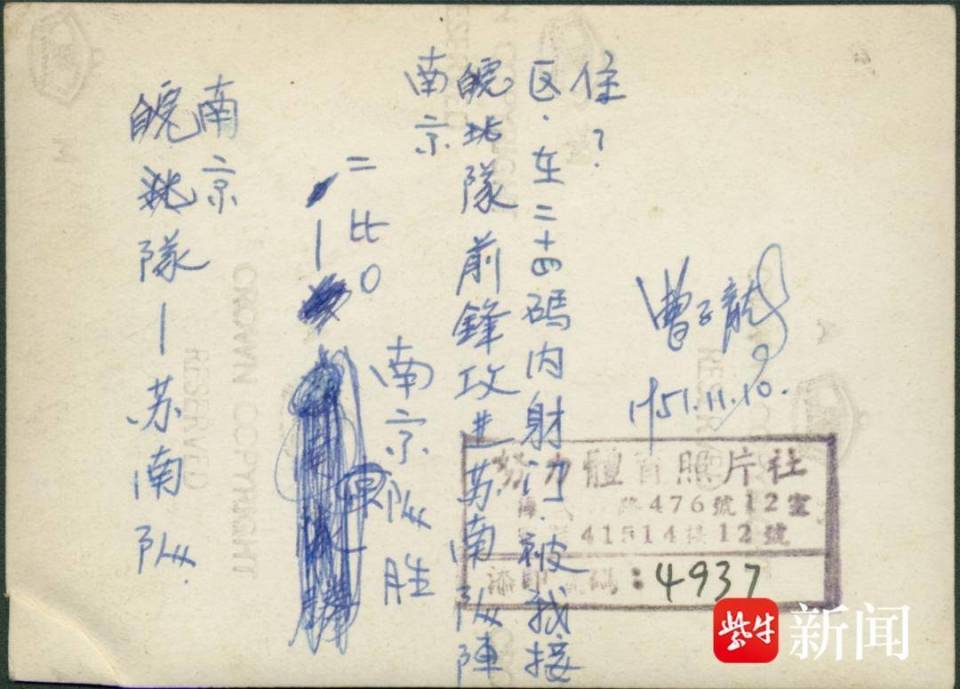 南京
皖北隊—苏南队
二比0
南京队胜
南京
皖北隊前鋒攻进苏南队陣
区.在二十四碼内射门.被我接
住?
曹子龍
1951.11.10.
努力體育照片社
海 路476號12室
41514 12號
添印號碼:4937
CROWN COPYRIGHT
RESERVED
紫牛新闻